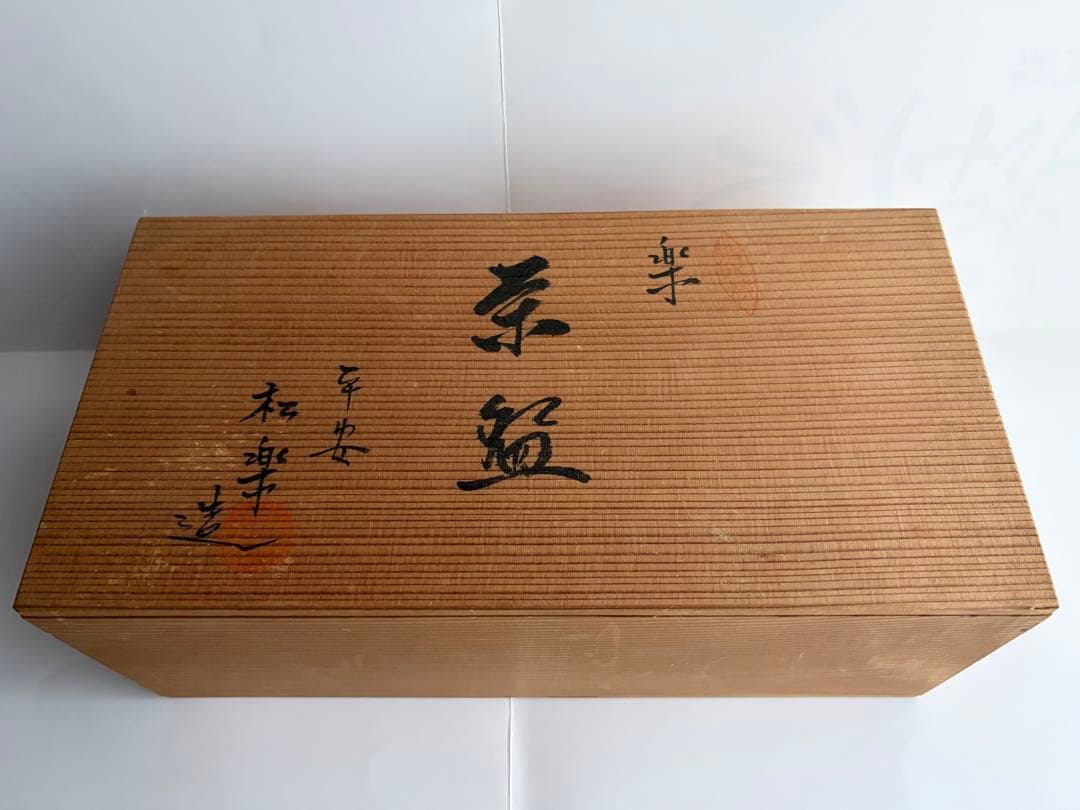 楽
茶盌
平安
松楽
造